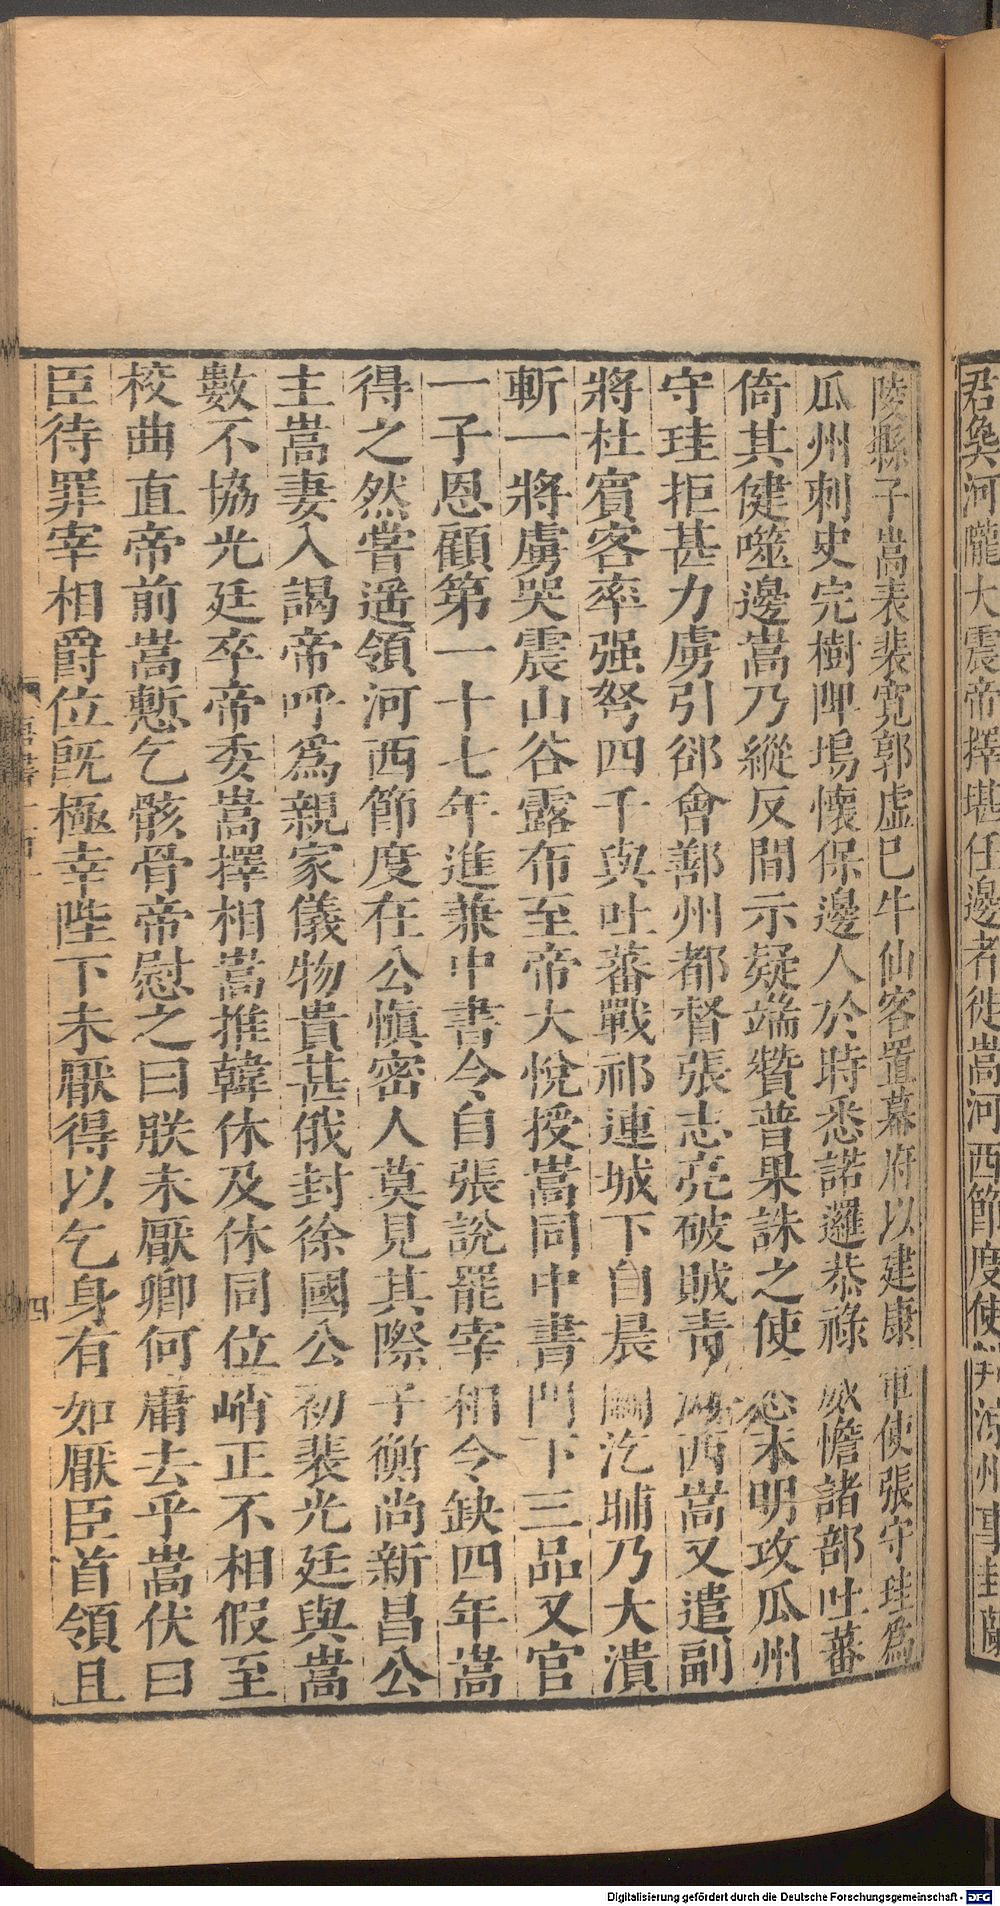 君㚟河隴大震帝擇堪任邊者徙嵩河西節度使判涼州事封蘭
陵縣子嵩表裴寛郭虛巳牛仙客置幕府以建康軍使張守珪爲
瓜州刺史完樹陴塢懷保邊人於時悉諾邏恭祿威憺諸部吐蕃
倚其健噬邊嵩乃縱反間示疑端贊普果誅之使悉末明攻瓜州
守珪拒甚力虜引郤會鄯州都督張志亮破賊青海西嵩又遣副
將杜賓客率强弩四千與吐蕃戰祁連城下自晨鬬汔晡乃大潰
斬一將虜哭震山谷露布至帝大悅授嵩同中書門下三品又官
一子恩顧第一十七年進兼中書令自張說罷宰相令缺四年嵩
得之然嘗遥領河西節度在公愼密人莫見其際子衡尚新昌公
主嵩妻入謁帝呼爲親家儀物貴甚俄封徐國公初裴光廷與嵩
數不協光廷卒帝委嵩擇相嵩推韓休及休同位峭正不相假至
校曲直帝前嵩慙乞骸骨帝慰之曰朕未厭卿何庸去乎嵩伏曰
臣待罪宰相爵位旣極幸陛下未厭得以乞身有如厭臣首領且
四
Digitalisierung gefördert durch die Deutsche Forschungsgemeinschaft - DFG